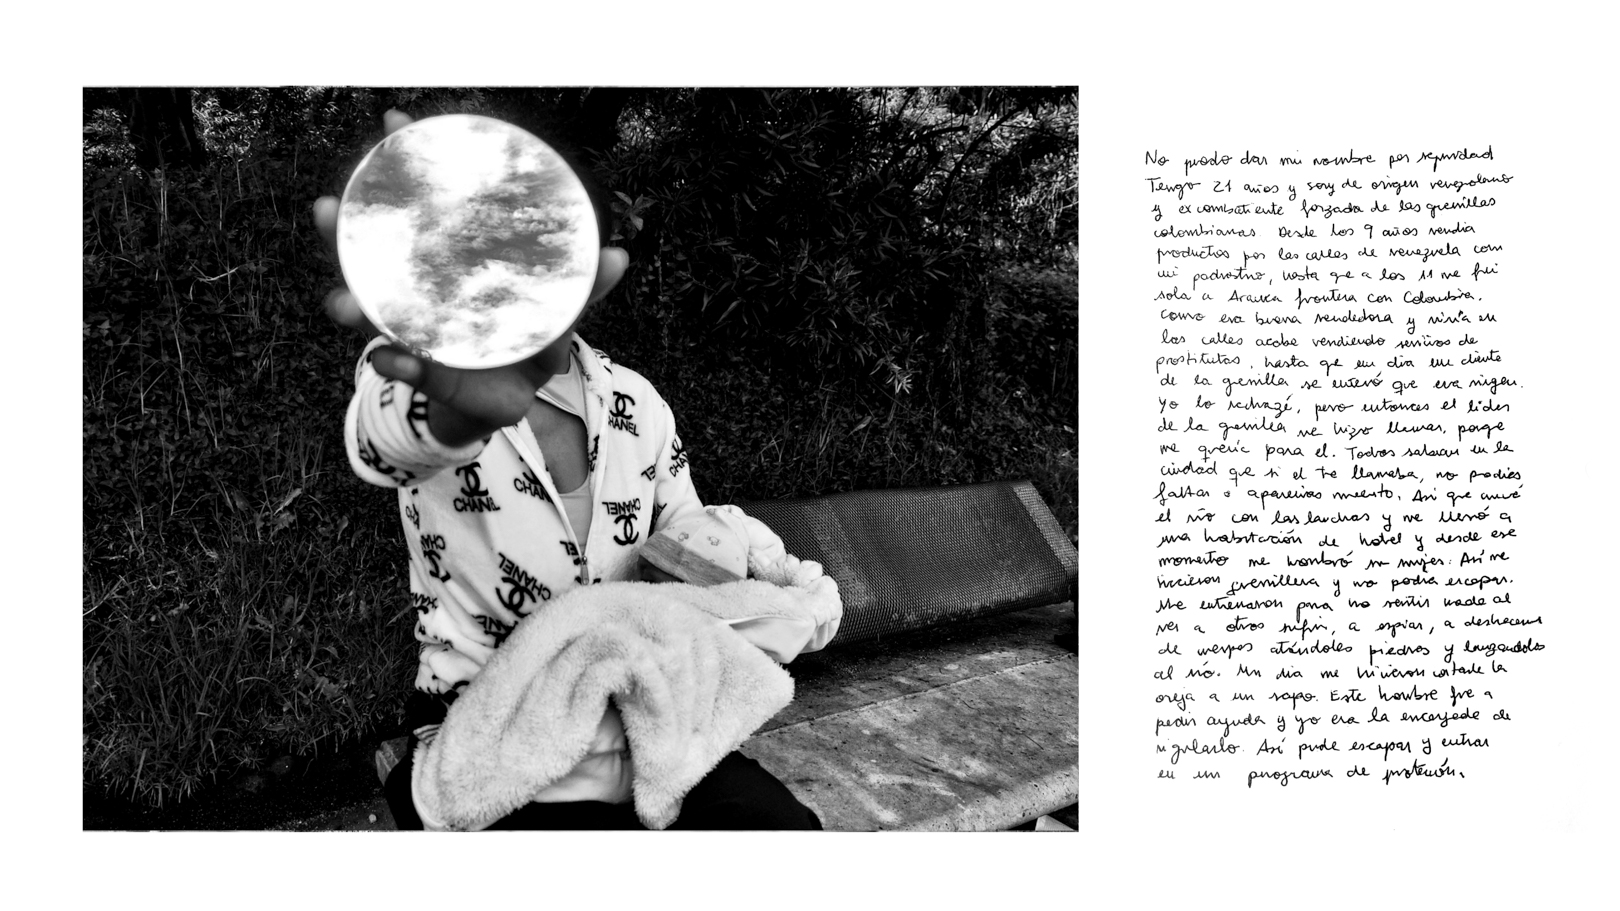 CHANEL
CHANEL
CHANEL
CHANEL
CHANEL
No puedo dar mi nombre por seguridad
Tengo 21 años y soy de origen venezolano
y excombatiente forzada de las guerrillas
colombianas. Desde los 9 años vendía
productos por las calles de venezuela con
mi padrastro, hasta que a los 11 me fui
sola a Arauca frontera con Colombia.
Como era buena vendedora y vivía en
las calles acabe vendiendo servicios de
prostitutas, hasta que un dia un cliente
de la guerrilla se enteró que era virgen.
Yo lo rechazé, pero entonces el lider
de la guerrilla me hizo llamar, porque
me quería para el. Todos sabian en la
ciudad que si el te llamaba, no podias
faltar o aparecias muerto. Asi que
el río con las lanchas y me llevó a
una habitación de hotel y desde ese
momento me nombró su mujer. Así me
hicieron guerrillera y no podia escapar.
Me entrenaron para no sentir nada al
ver a otros sufrir, a espiar, a deshacerme
de cuerpos atándoles piedras y lanzandolos
al río. Un dia me hicieron cortarle la
oreja a un sapo. Este hombre fue a
pedir ayuda y yo era la encargada de
vigilarlo. Así pude escapar y entrar
en un programa de protección.